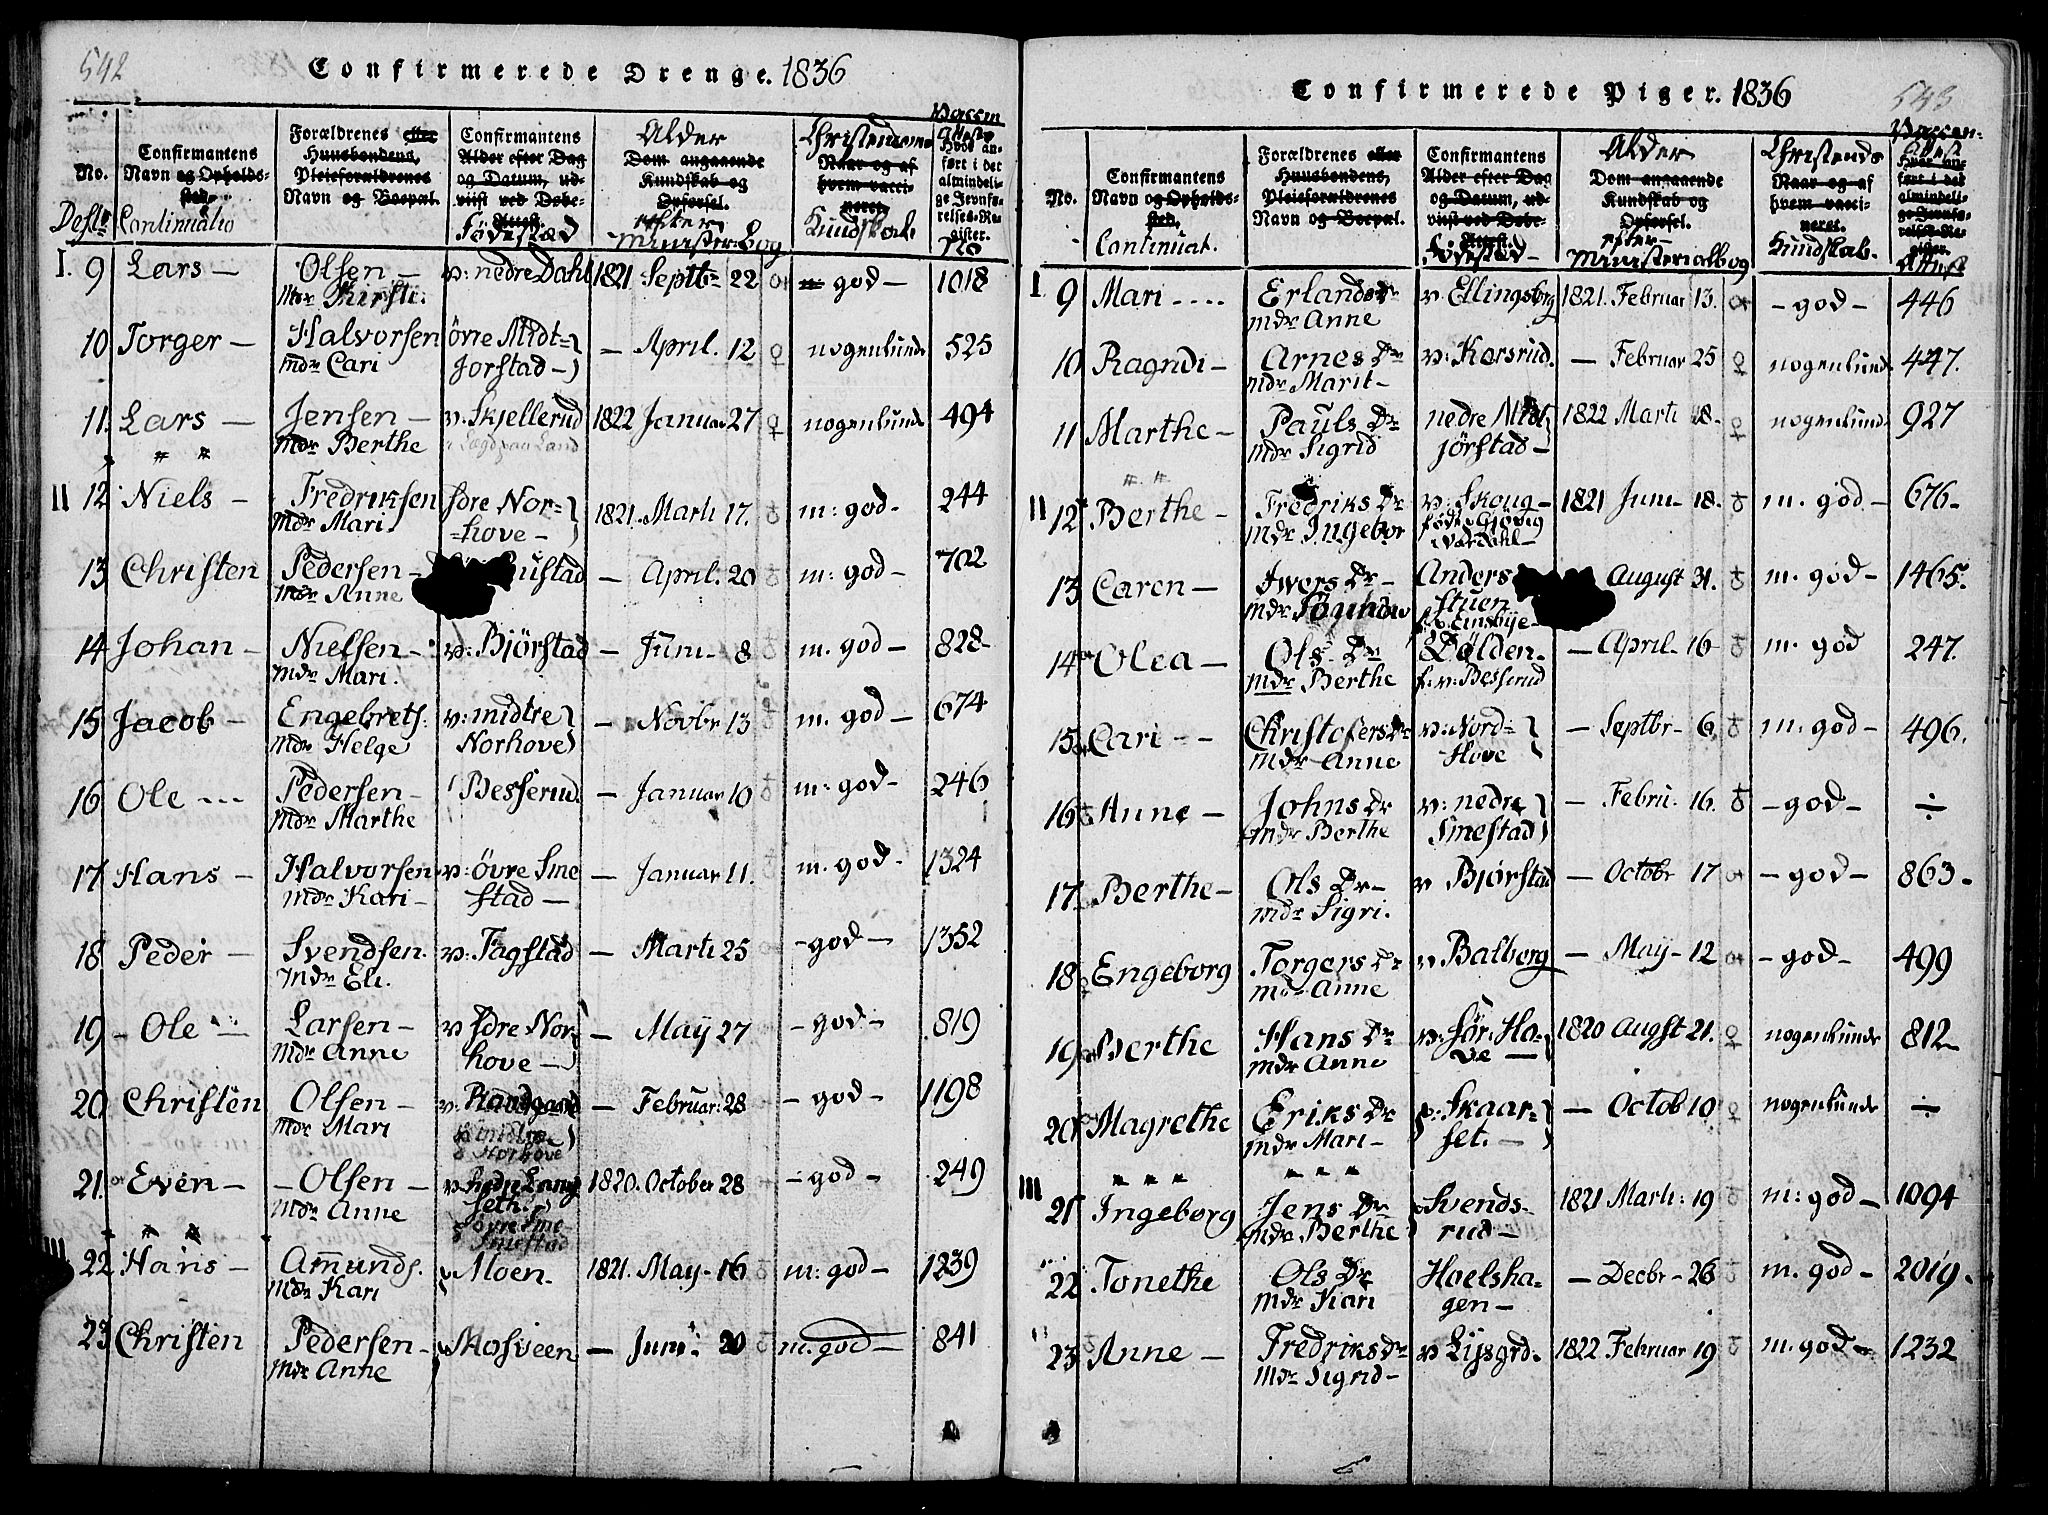 542
Confirmerede Drenge. 1836
No. Confirmantens Navn og Opholdssted. Forældrenes eller Huusbondens, Pleieforældrenes Navn og Boepæl. Confirmantens Alder efter Dag og Datum, udviist ved Døbe-Attest. Dom angaaende Kundskab og Opførsel. Naar og af hvem vaccineret. Hvor anført i det almindelige Jevnførelses-Register.
Continuatio Fødested Alder efter Minister: Bog Christendoms Kundskab No
I. 9 Lars — Olsen — v: nedre Dahl 1821 Septb- 22 god — 1018
Mdr Kirsti.
10 Torger — Halvorsen øvre Midt= — April. 12 nogenlunde 525
mdr Cari Jorstad —
11. Lars — Jensen — v: Skjellerud 1822 Januar 27 nogenlunde 494
Mdr Berthe
II 12 Niels — Fredriksen sdre Nor= 1821. Marti 17. m: god — 244
Mdr Mari =hove —
13 Christen Pedersen — — April. 20 m: god — 702
Mdr Anne
14 Johan — Nielsen — v: Bjørstad — Juni — 8 m. god — 828
Mdr Mari.
15 Jacob — Engebrets. v: midtre — Novbr 13 m. god — 674
Mdr Helge Norhove
16 Ole --- Pedersen — Besserud. — Januar 10 m: god — 246
Mdr Marthe
17 Hans — Halvorsen v: övre Sme — Januar 11. m. god — 1324
Mdr Kari — stad —
18 Peder — Svendsen. v: Fagstad — Marti 25 — god — 1352
Mdr Eli.
19 — Ole — Larsen — v sdre Nor — May 27 — god — 819
Mdr Anne hove —
20 Christen Olsen — — Februar: 28 — god — 1198
Mdr Mari Norhove
21. Even — — Olsen — 1820. October 28 — god — 249
Mdr Anne seth.
övre Sme
Smestad
III 22 Hans — Amunds. Moen. 1821. May — 16 m: god — 1239
Mdr Kari
23 Christen Pedersen — Mosveen — Juni 20 m. god — 841
Mdr Anne
543
Confirmerede Piger. 1836
No. Confirmantens Navn og Opholdssted. Forældrenes eller Huusbondens, Pleieforældrenes Navn og Boepæl. Confirmantens Alder efter Dag og Datum, udviist ved Døbe-Attest. Dom angaaende Kundskab og Opførsel. Naar og af hvem vaccineret. Hvor anført i det almindelige Jevnførelses-Register.
Continuat. Fødested Alder efter Ministerialbog Christends Kundskab. Attest
I 9 Mari ---- Erlands Dr v Ellingsberg 1821. Februar 13. — god — 446
mdr Anne
10 Ragndi — Arnes Dr v: Korsrud. — Februar 25 nogenlund. 447.
mdr Marit —
11 Marthe — Pauls Dr nedre Midt 1822 Marti 18. nogenlund. 927
mdr Sigrid jørstad —
II 12 Berthe — Fredriks Dr v: Skoug — 1821 Juni — 18. m. god — 676
mdr Ingebor
13 Caren — Iwers Dr — Anders August 31. m. god — 1465.
mdr stuen
Einsbye —
14 Olea — Ols Dr Dølden. — April — 16 m. god 247.
mdr Berthe f. v: Besserud
15 Cari — — Christofers Dr v: Nord= — Septbr — 6, m: god — 496.
Mdr Anne Hove
16 Anne — Johns Dr v: nedre — Febru: 16. — god — ÷
mdr Berthe Smestad
17 Berthe — Ols Dr — v Bjørstad — Octobr 17 — god — 863 —
mdr Sigri.
18 Engeborg Torgers Dr v Balberg — May — 12 — god — 499
mdr Anne
19 Berthe Hans Dr v: Sör: Ho= 1820 Augst 21. nogenlunde 812
mdr Anne ve —
20 Magrethe Eriks Dr v: Skaar= — Octob 10 nogenlunde ÷
mdr Mari — set. —
III 21 Ingeborg Jens Dr Svends- 1821 Marti: 19 m: god — 1094
mdr Berthe rud —
22 Tonethe Ols Dr Hoelsha- — Decbr — 26 m. god — 2019.
mdr Kari gen —
23 Anne — Fredriks Dr v Lysgrd. 1822 Februar 19 m. god — 1232
mdr Sigrid —